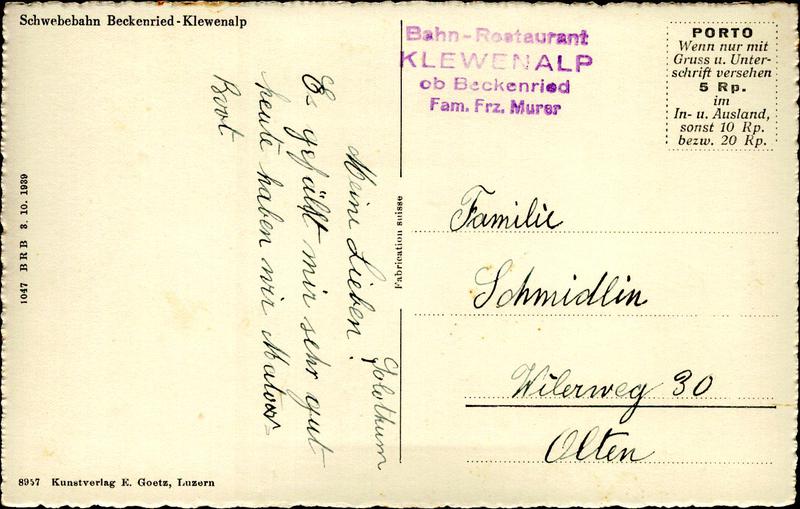 Schwebebahn Beckenried-Klewenalp
Bahn-Restaurant
KLEWENALP
ob Beckenried
Fam. Frz. Murer
PORTO
Wenn nur mit
Gruss u. Unter-
schrift versehen
5 Rp.
im
In- u. Ausland,
sonst 10 Rp.
bezw. 20 Rp.
Solothurn
Meine Lieben!
Es gefällt mir sehr gut
heute haben wir
Boot
Familie
Schmidlin
Wilerweg 30
Olten
Fabrication suisse
1047 BRB 3. 10. 1939
8957 Kunstverlag E. Goetz, Luzern